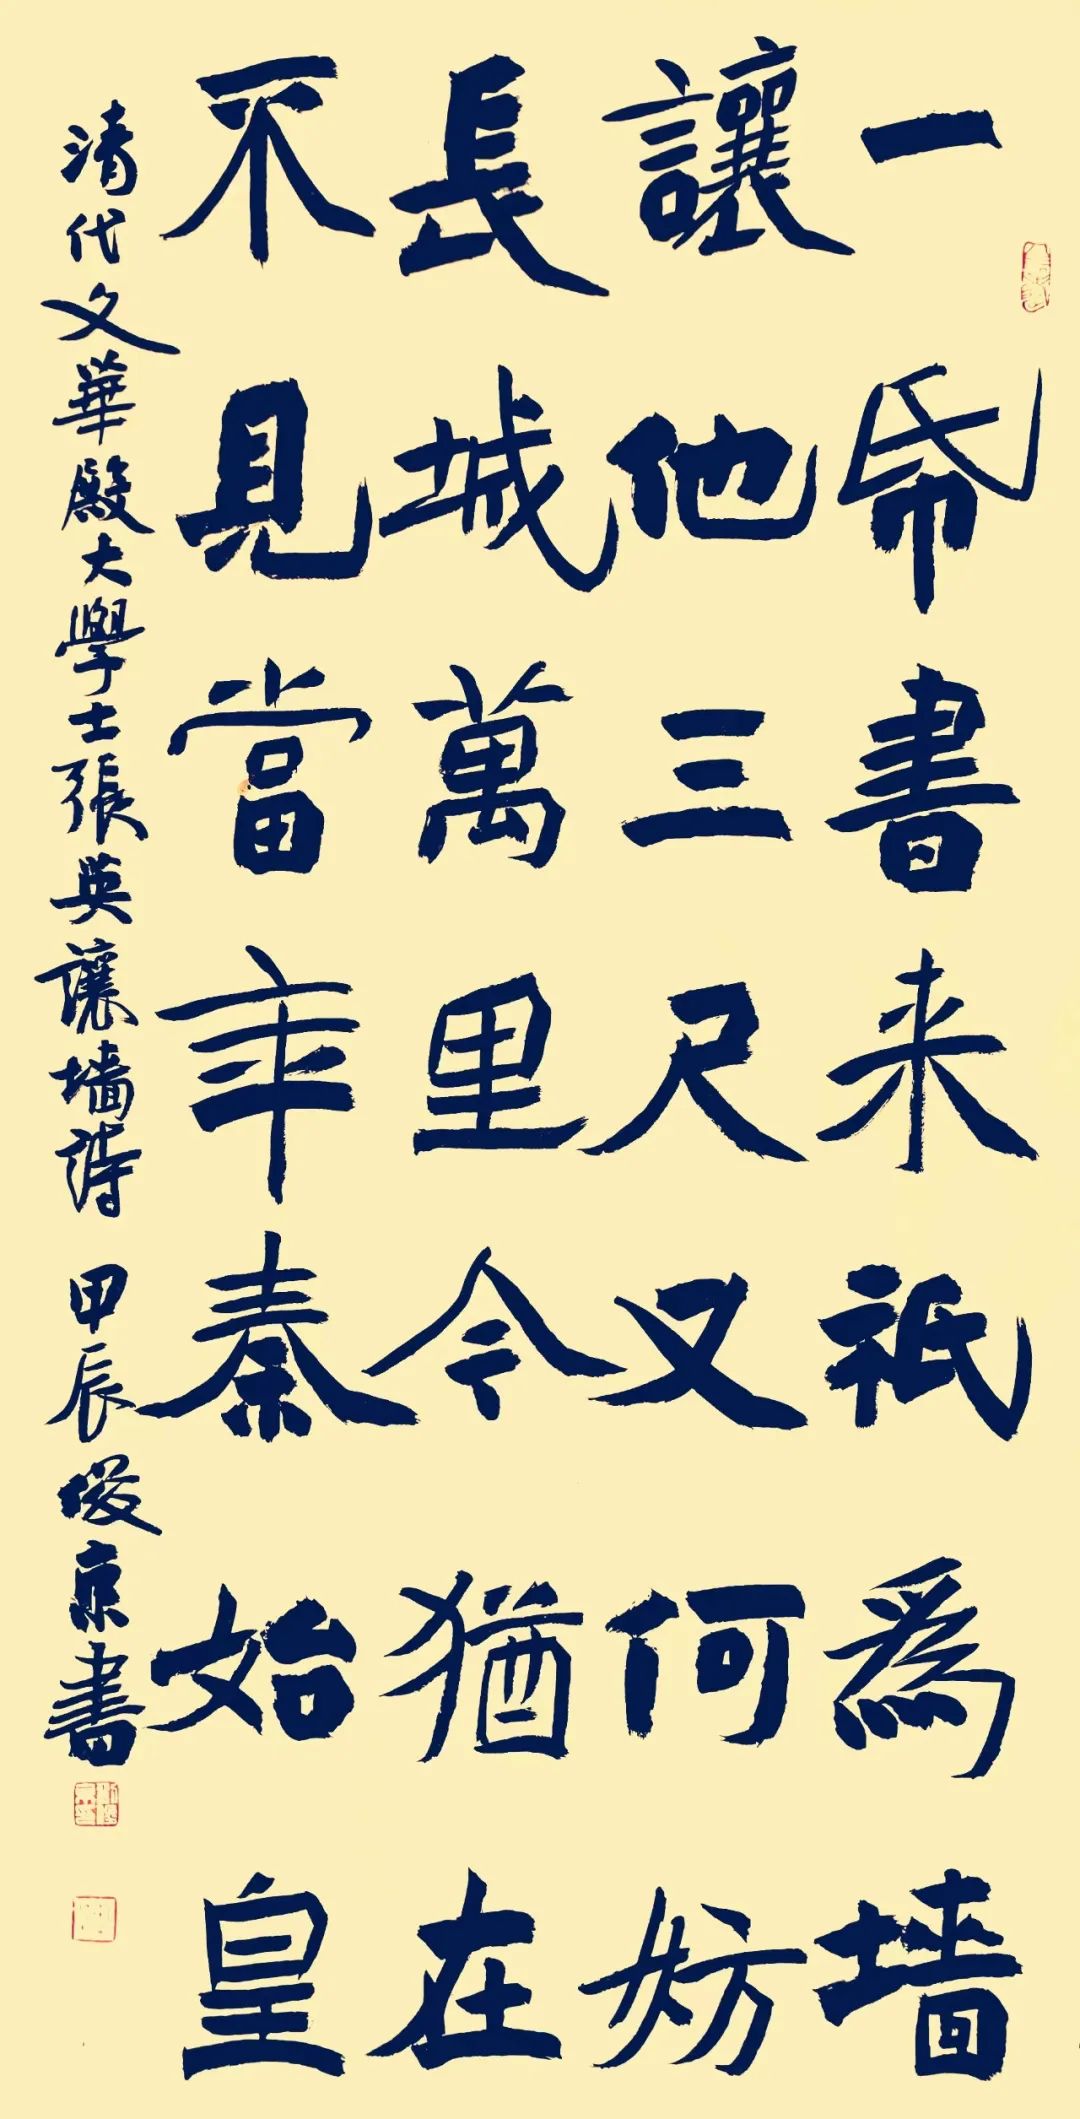 一帋書来祇爲墙
讓他三尺又何妨
長城萬里今猶在
不見當年秦始皇
清代文華殿大學士張英讓墙詩 甲辰 俊京書